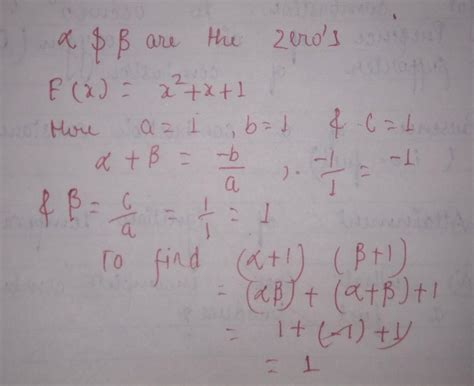 α & β are the zero's
F(x) = x²+x+1
Here a = 1 , b = 1 & c = 1
α + β = -b/a , . -1/1 = -1
& β = c/a = 1/1 = 1
To find (α+1) (β+1)
= (αβ) + (α+β) + 1
= 1 + (-1) + 1
= 1